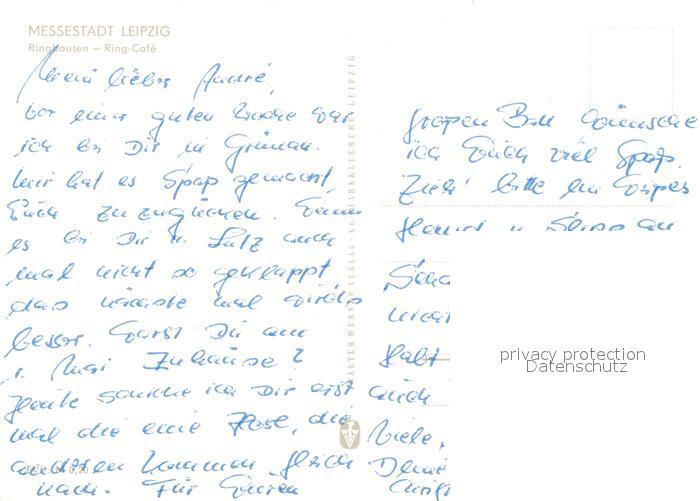 MESSESTADT LEIPZIG
Ringbauten – Ring-Café
Mein lieber André,
vor einer guten Woche war
ich bei Dir in Grünau.
Mir hat es Spaß gemacht,
Euch zuzugucken. Wenn
es bei Dir u. Lutz auch
mal nicht so geklappt
das nächste mal wird's
besser. Warst Du am
1. Mai Zuhause?
Heute schicke ich Dir erst
mal die eine Rose, die
anderen kommen gleich
nach. Für Euren
großen Ball wünsche
ich Euch viel Spaß.
Zieh' bitte ein
Hemd u.
nicht
Habt
auch
Viele,
Deine
WALTER WERNER VERLAG · LEIPZIG
privacy protection
Datenschutz